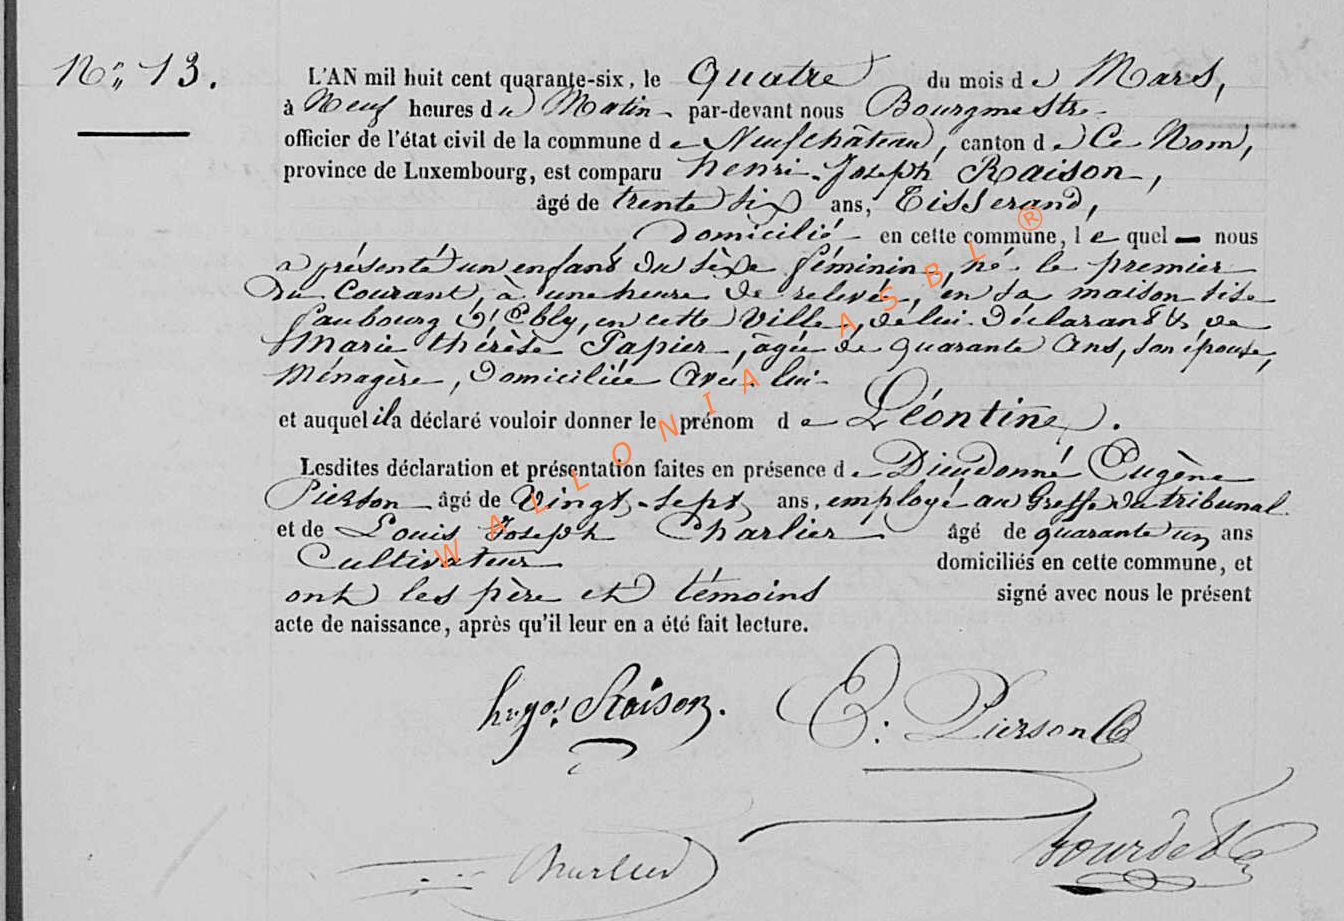 N° 13.
L'AN mil huit cent quarante-six, le Quatre du mois de Mars,
à Neuf heures du Matin par-devant nous Bourgmestre
officier de l'état civil de la commune de Neufchâteau, canton de Ce Nom,
province de Luxembourg, est comparu henri-Joseph Raison,
âgé de trente six ans, Tisserand,
domicilié en cette commune, lequel — nous
a présenté un enfant du sèxe féminin, né le premier
du Courant, à une heure de relevée, en sa maison sise
faubourg d'Ebly, en cette Ville, de lui déclarant & de
Marie thérèse Papier, âgée de quarante Ans, son épouse,
Ménagère, domiciliée Avec lui
et auquel il a déclaré vouloir donner le prénom de Léontine.
Lesdites déclaration et présentation faites en présence de Dieudonné Eugène
Pierson âgé de Vingt-sept ans, employé au Greffe du tribunal
et de Louis Joseph Charlier âgé de quarante un ans
Cultivateur domiciliés en cette commune, et
ont les père et témoins signé avec nous le présent
acte de naissance, après qu'il leur en a été fait lecture.
Raison.
E. Pierson
Charlier
WALLONIA ASBL ®